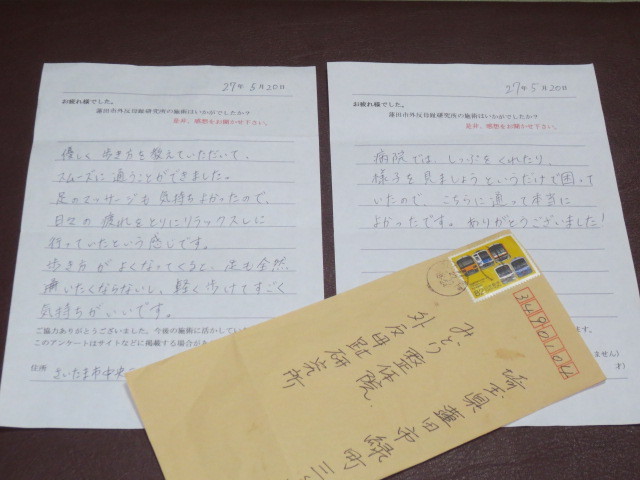 27年5月20日
お疲れ様でした。
蓮田市外反母趾研究所の施術はいかがでしたか？
是非、感想をお聞かせ下さい。
優しく歩き方を教えていただいて、
スムーズに通うことができました。
足のマッサージも気持ちよかったので、
日々の疲れをとりにリラックスしに
行っていたという感じです。
歩き方がよくなってくると、足も全然
痛いたくならないし、軽く歩けてすごく
気持ちがいいです。
ご協力ありがとうございました。今後の施術に活かしてい
このアンケートはサイトなどに掲載する場合があ
住所 さいたま市中央
27年5月20日
お疲れ様でした。
蓮田市外反母趾研究所の施術はいかがでしたか？
是非、感想をお聞かせ下さい。
病院では、しっぷをくれたり、
様子を見ましょうというだけで困って
いたので、こちらに通って本当に
よかったです。ありがとうございました！
ません）
才）
3490107
埼玉県蓮田市緑町三
みどり整体院
外反母趾研究所